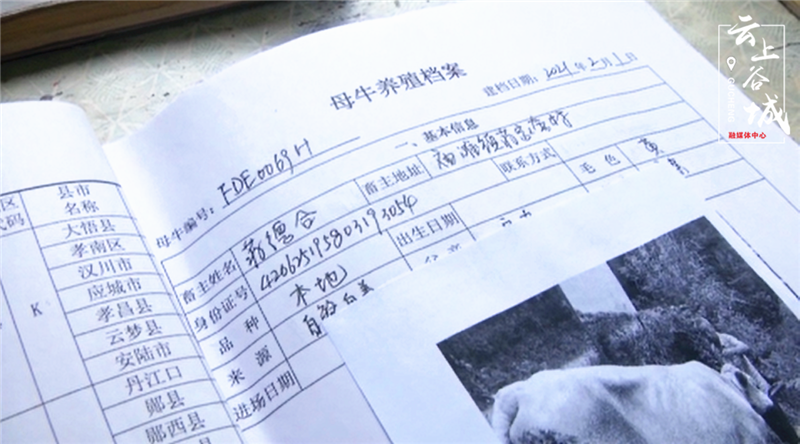 云上谷城
融媒体中心
区 县市
代码 名称
K
大悟县
孝南区
汉川市
应城市
孝昌县
云梦县
安陆市
丹江口
郧县
郧西县
母牛养殖档案
母牛编号：FDE0069H 建档日期：2021年2月1日
一、基本信息
畜主姓名 德合 畜主地址
身份证号 420625195803193054 联系方式
品 种 本地 出生日期 毛 色 黄
来 源 自繁自养
进场日期